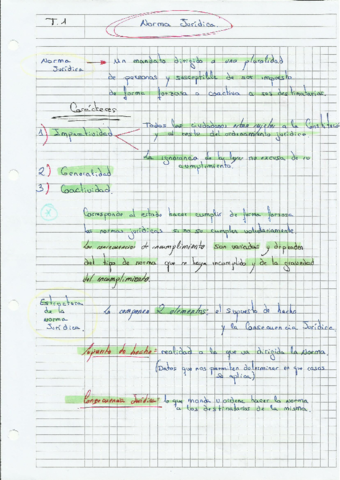 T.1
Norma Jurídica
Norma Jurídica → Un mandato dirigido a una pluralidad
de personas y susceptible de ser impuesto
de forma forzosa o coactiva a sus destinatarios.
Carácteres
1) Imperatividad
Todos los ciudadanos están sujetos a la Constitución
y al resto del ordenamiento jurídico
La ignorancia de la ley no excusa de su
cumplimiento.
2) Generalidad
3) Coactividad.
Corresponde al estado hacer cumplir de forma forzosa
las normas jurídicas si no se cumplen voluntariamente.
Las consecuencias de incumplimiento son variadas y dependen
del tipo de norma que se haya incumplido y de la gravedad
del incumplimiento.
Estructura de la norma Jurídica.
La componen 2 elementos: el supuesto de hecho
y la Consecuencia Jurídica.
Supuesto de hecho: realidad a la que va dirigida la norma.
(Datos que nos permiten determinar en que casos
se aplica)
Consecuencia Jurídica: lo que manda u ordena hacer la norma
a los destinatarios de la misma.